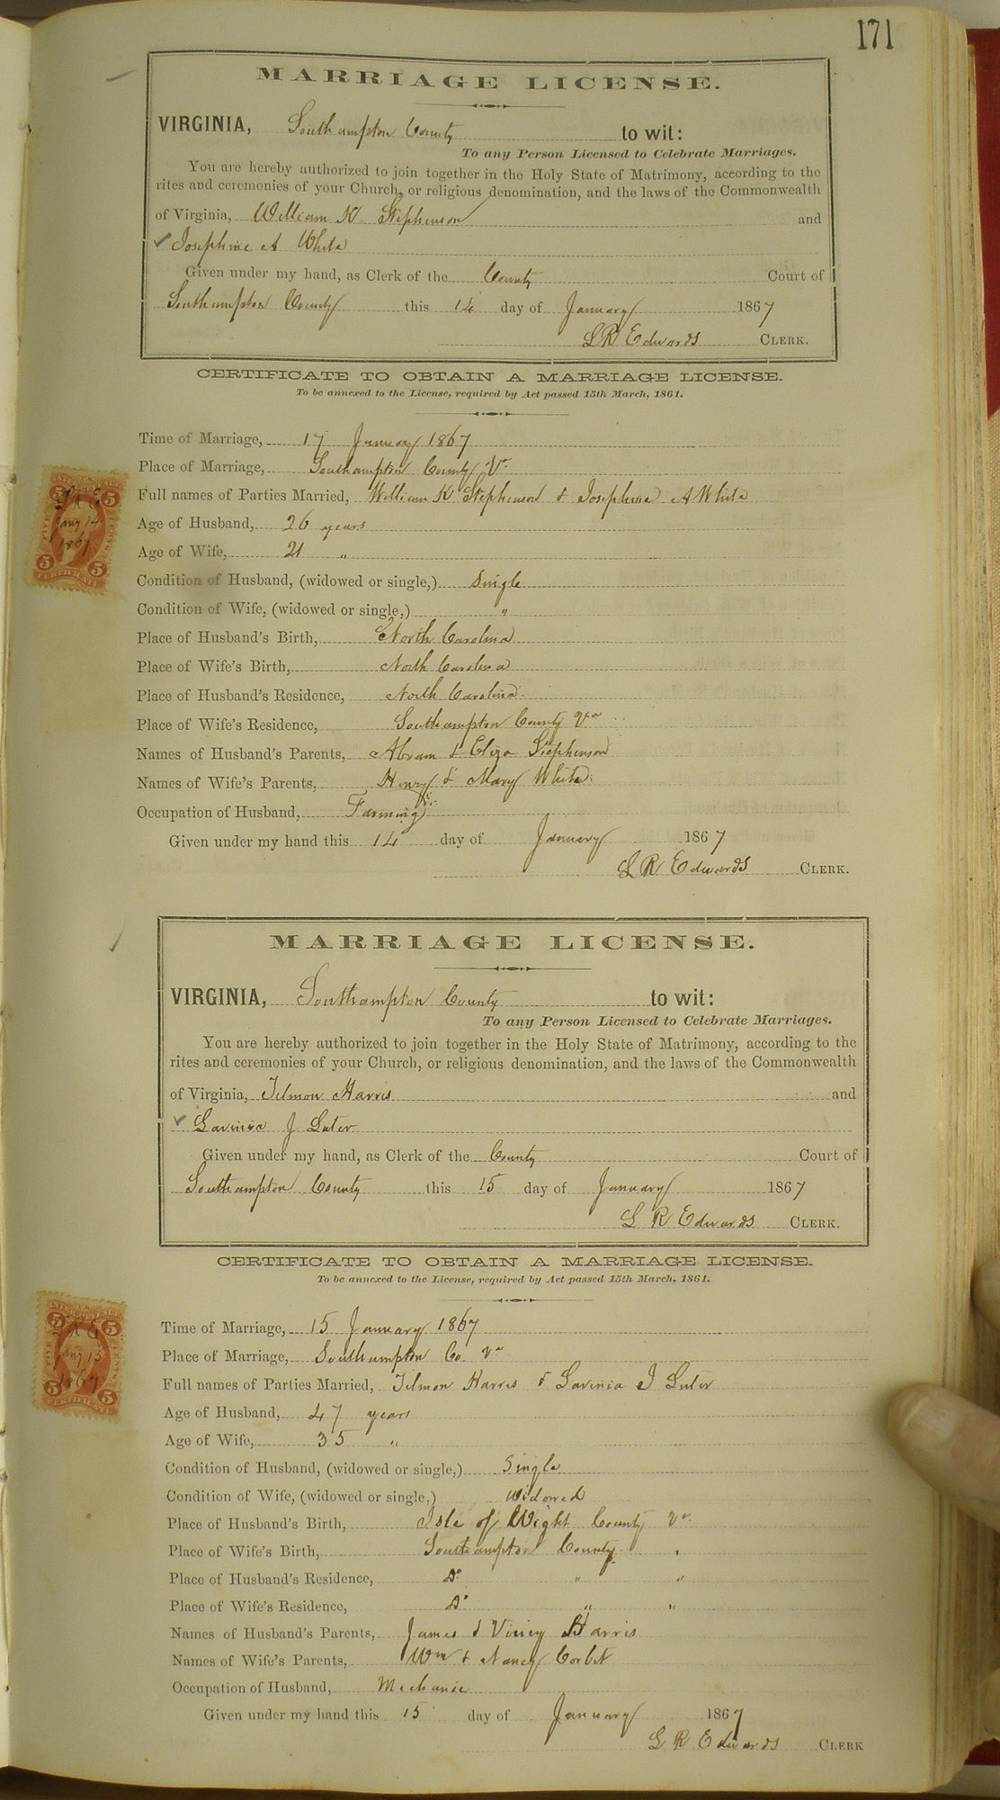 171
MARRIAGE LICENSE.
VIRGINIA, Southampton County to wit:
To any Person Licensed to Celebrate Marriages.
You are hereby authorized to join together in the Holy State of Matrimony, according to the
rites and ceremonies of your Church, or religious denomination, and the laws of the Commonwealth
of Virginia, William K Stephenson and
Josephine A White
Given under my hand, as Clerk of the County Court of
Southampton County this 14 day of January 1867
L R Edwards CLERK.
CERTIFICATE TO OBTAIN A MARRIAGE LICENSE.
To be annexed to the License, required by Act passed 15th March, 1861.
Time of Marriage, 17 January 1867
Place of Marriage, Southampton County Va
Full names of Parties Married, William K Stephenson & Josephine A White
Age of Husband, 26 years
Age of Wife, 21 "
Condition of Husband, (widowed or single,) Single
Condition of Wife, (widowed or single,) "
Place of Husband's Birth, North Carolina
Place of Wife's Birth, North Carolina
Place of Husband's Residence, North Carolina
Place of Wife's Residence, Southampton County Va
Names of Husband's Parents, Abram & Eliza Stephenson
Names of Wife's Parents, Henry & Mary White
Occupation of Husband, Farming
Given under my hand this 14 day of January 1867
L R Edwards CLERK.
MARRIAGE LICENSE.
VIRGINIA, Southampton County to wit:
To any Person Licensed to Celebrate Marriages.
You are hereby authorized to join together in the Holy State of Matrimony, according to the
rites and ceremonies of your Church, or religious denomination, and the laws of the Commonwealth
of Virginia, Tilmon Harris and
Lavinia J Luter
Given under my hand, as Clerk of the County Court of
Southampton County this 15 day of January 1867
L R Edwards CLERK.
CERTIFICATE TO OBTAIN A MARRIAGE LICENSE.
To be annexed to the License, required by Act passed 15th March, 1861.
Time of Marriage, 15 January 1867
Place of Marriage, Southampton Co Va
Full names of Parties Married, Tilmon Harris & Lavinia J Luter
Age of Husband, 47 years
Age of Wife, 35 "
Condition of Husband, (widowed or single,) Single
Condition of Wife, (widowed or single,) Widowed
Place of Husband's Birth, Isle of Wight County Va
Place of Wife's Birth, Southampton County "
Place of Husband's Residence, Do " "
Place of Wife's Residence, Do " "
Names of Husband's Parents, James & Viney Harris
Names of Wife's Parents, Wm & Nancy Corbit
Occupation of Husband, Mechanic
Given under my hand this 15 day of January 1867
L R Edwards CLERK